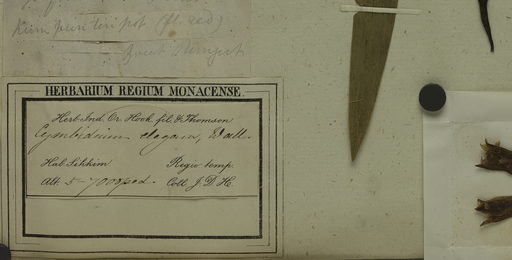 (fl. red)
HERBARIUM REGIUM MONACENSE.
Herb. Ind. Or. Hook. fil. & Thomson
Cymbidium elegans, Wall.
Hab. Sikkim Regio temp.
Alt. 5-7000 ped. Coll. J. D. H.